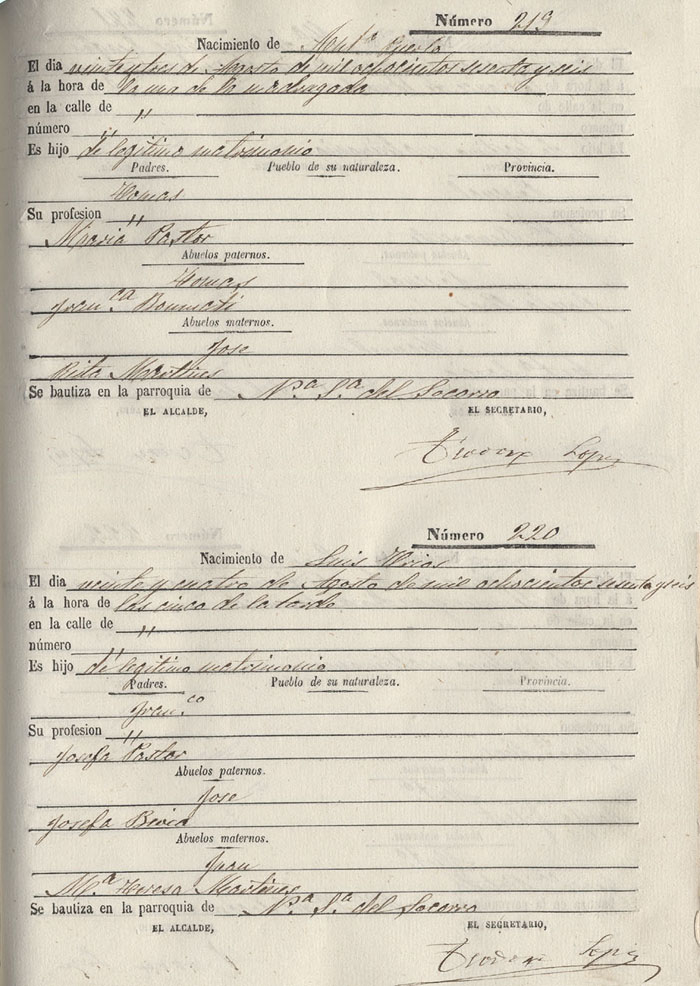 Número 219
Nacimiento de
El dia veinte y tres de Agosto de mil ochocientos sesenta y seis
á la hora de la una de la madrugada
en la calle de "
número "
Es hijo de legitimo matrimonio
Padres. Pueblo de su naturaleza. Provincia.
Tomas
Su profesion "
Maria Pastor
Abuelos paternos.
Tomas
Fran.ca Bonmati
Abuelos maternos.
Jose
Rita Martines
Se bautiza en la parroquia de N.a S.a del Socorro
EL ALCALDE, EL SECRETARIO,
Lopez
Número 220
Nacimiento de Luis
El dia veinte y cuatro de Agosto de mil ochocientos sesenta y seis
á la hora de las cinco de la tarde
en la calle de "
número "
Es hijo de legitimo matrimonio
Padres. Pueblo de su naturaleza. Provincia.
Fran.co
Su profesion "
Josefa Pastor
Abuelos paternos.
Jose
Josefa
Abuelos maternos.
Juan
M.a Teresa Martines
Se bautiza en la parroquia de N.a S.a del Socorro
EL ALCALDE, EL SECRETARIO,
Lopez